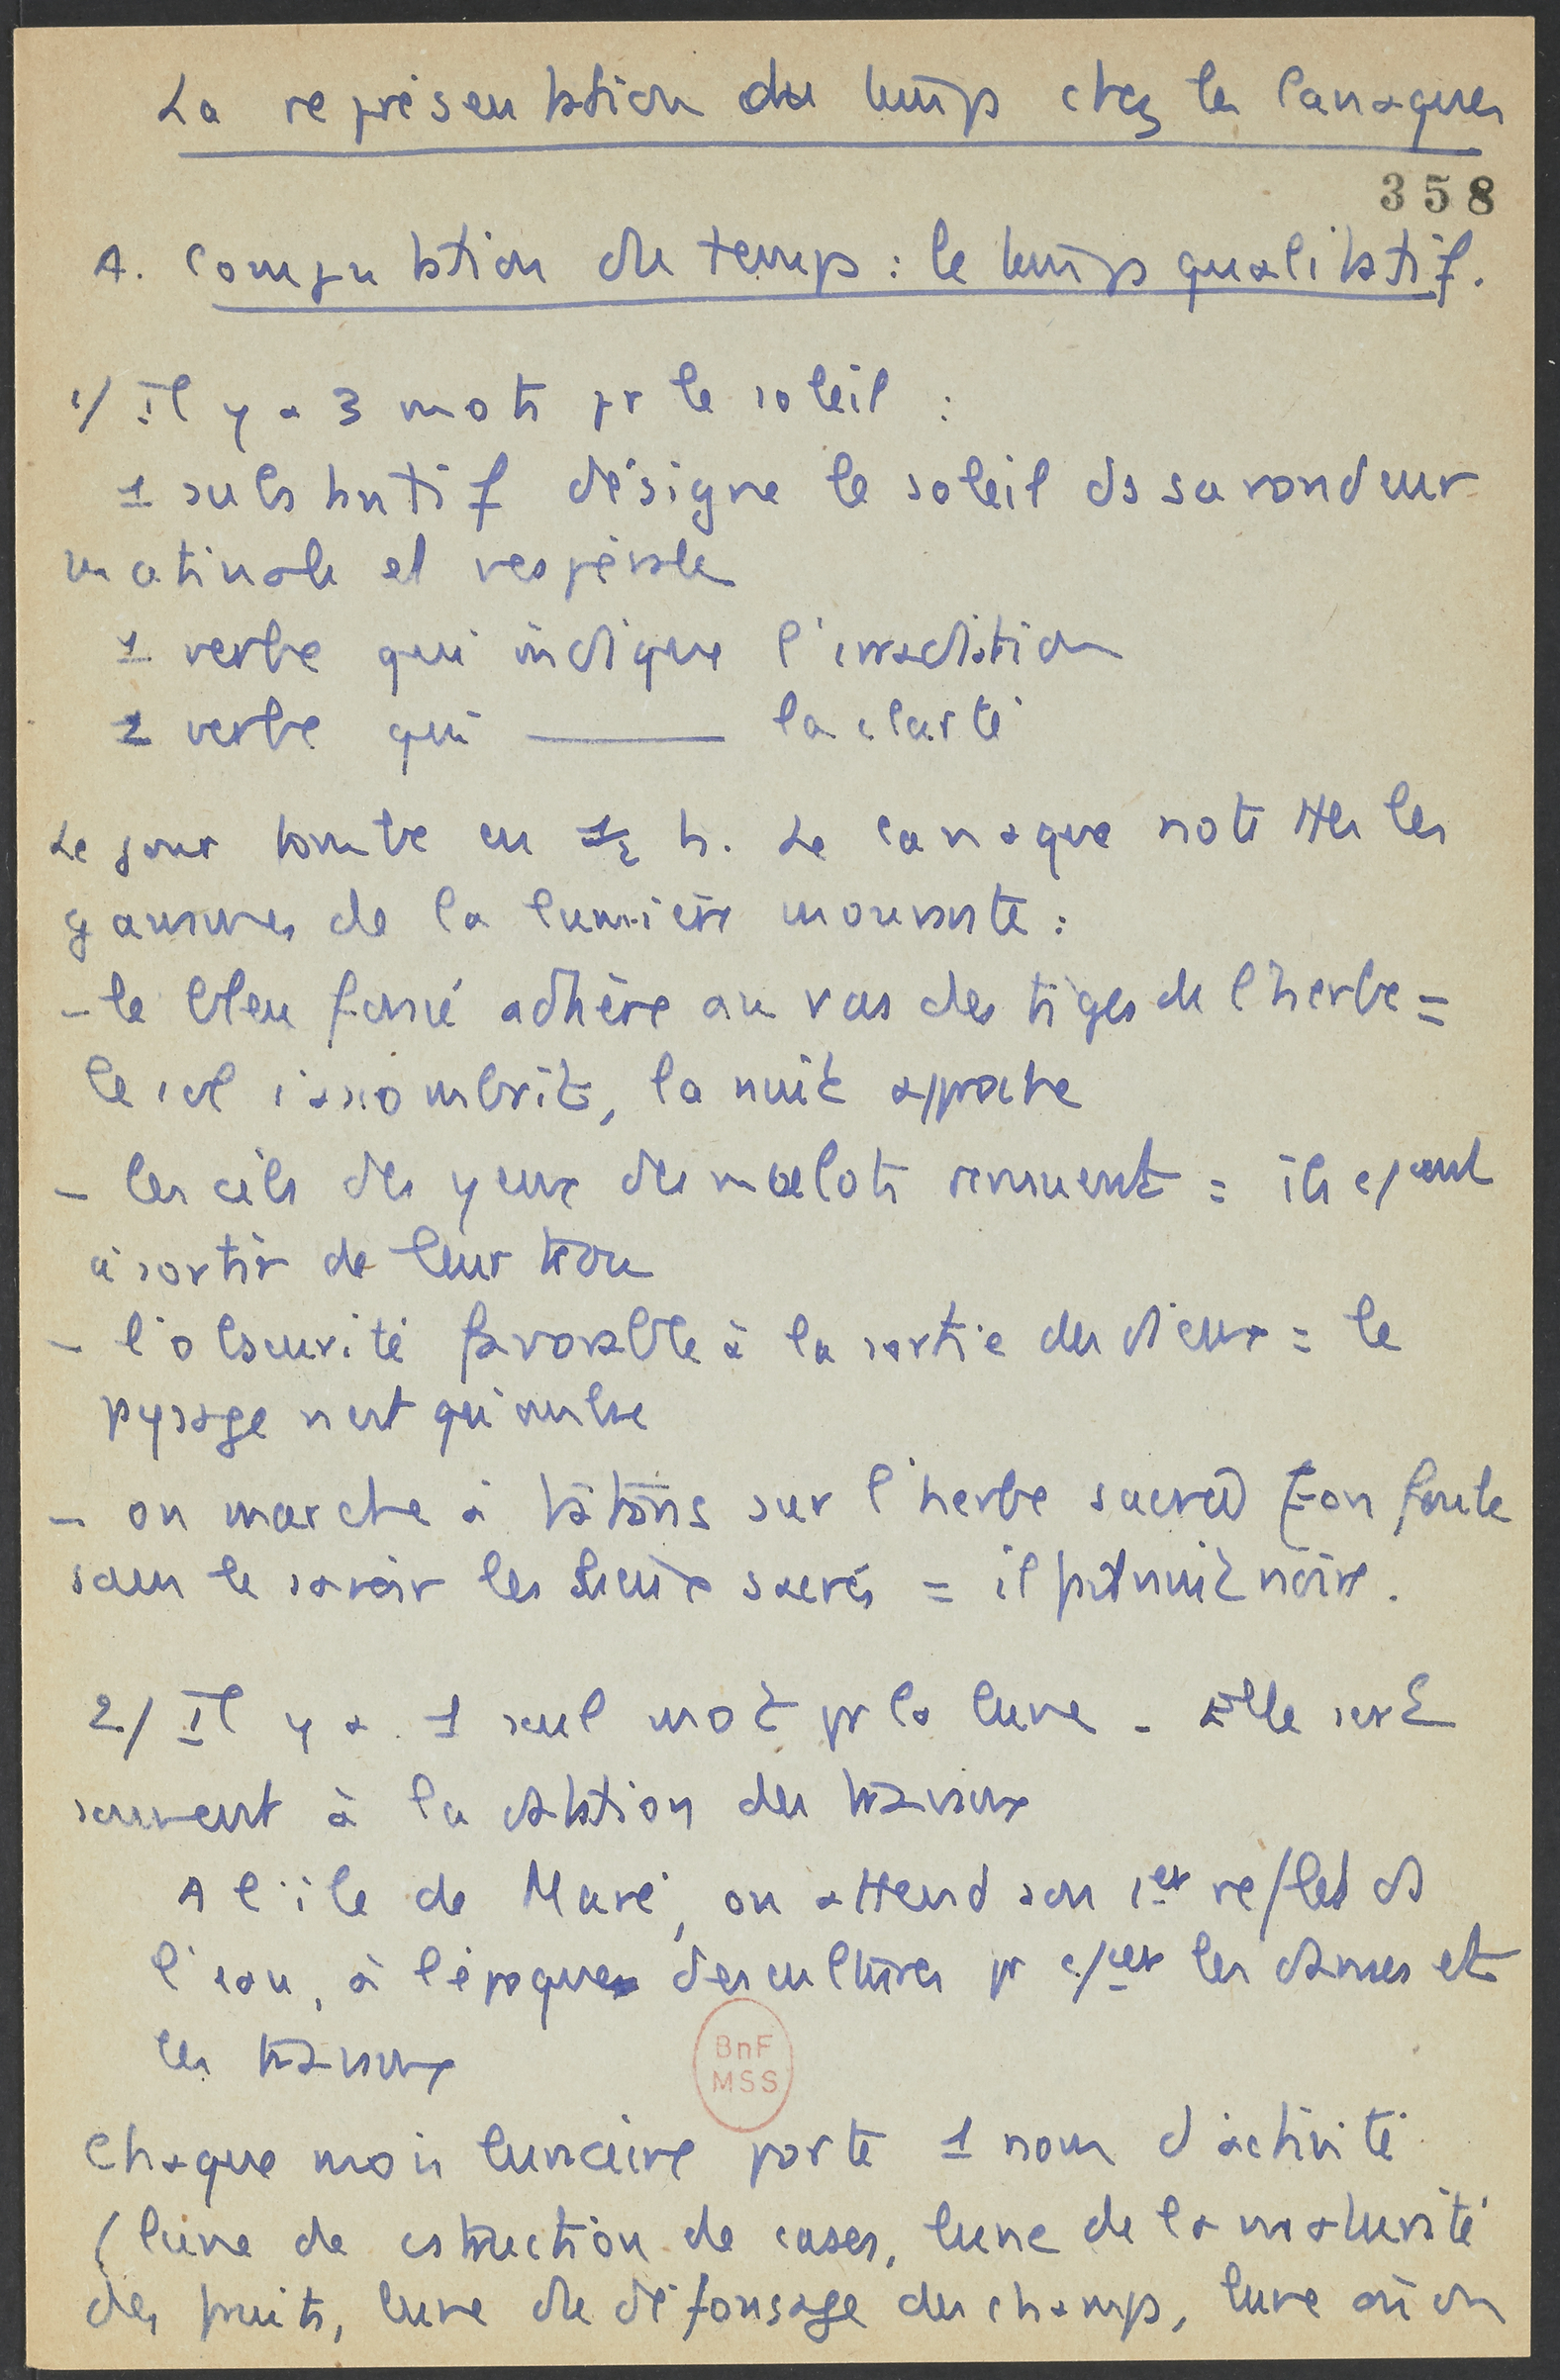 La représentation du temps chez les Canaques
358
A. Computation du temps : le temps qualitatif.
1/ Il y a 3 mots pr le soleil :
1 substantif désigne le soleil ds sa rondeur
matinale et vespérale
1 verbe qui indique l'irradiation
1 verbe qui ——— la clarté
Le jour tombe en 1/2 h. Le canaque note ttes les
gammes de la lumière mouvante :
- le bleu foncé adhère au ras des tiges de l'herbe =
le sol s'assombrit, la nuit approche
- les cils des yeux des mulots remuent = ils cencent
à sortir de leur trou
- l'obscurité favorable à la sortie des dieux = le
paysage n'est qu'ombre
- on marche à tâtons sur l'herbe sacrée et on foule
sans le savoir les lieux sacrés = il fait nuit noire.
2/ Il y a 1 seul mot pr la lune - Elle sert
souvent à la datation des travaux
A l'île de Maré, on attend son 1er reflet ds
l'eau, à l'époque des cultures pr cer les danses et
les travaux
Chaque mois lunaire porte 1 nom d'activité
(lune de cstruction de cases, lune de la maturité
des fruits, lune de défonsage des champs, lune où on